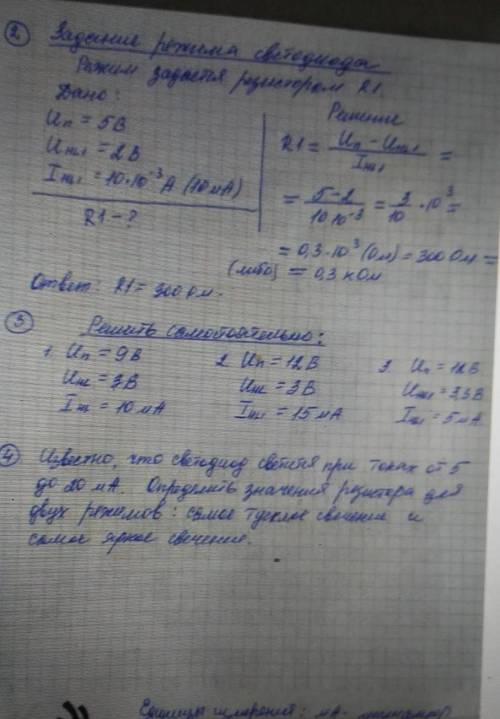 2 Задание режима светодиода
Режим задается резистором R1.
Дано:
Uп = 5В
Uнл1 = 2В
Iнл1 = 10·10⁻³ А (10 мА)
R1 - ?
Решение
R1 = (Uп - Uнл1) / Iнл1 =
= (5-2) / (10·10⁻³) = 3/10 · 10³ =
= 0,3·10³ (Ом) = 300 Ом =
(либо) = 0,3 кОм
Ответ: R1 = 300 Ом.
3 Решить самостоятельно:
1. Uп = 9В 2. Uп = 12В 3. Uп = 12В
= 3В = 3В = 3,3В
= 10 мА = 15 мА = 5 мА
4 Известно, что светодиод светится при токах от 5
до 20 мА. Определить значения резистора для
двух режимов: самое тусклое свечение и
самое яркое свечение.
Единицы измерения: мА -